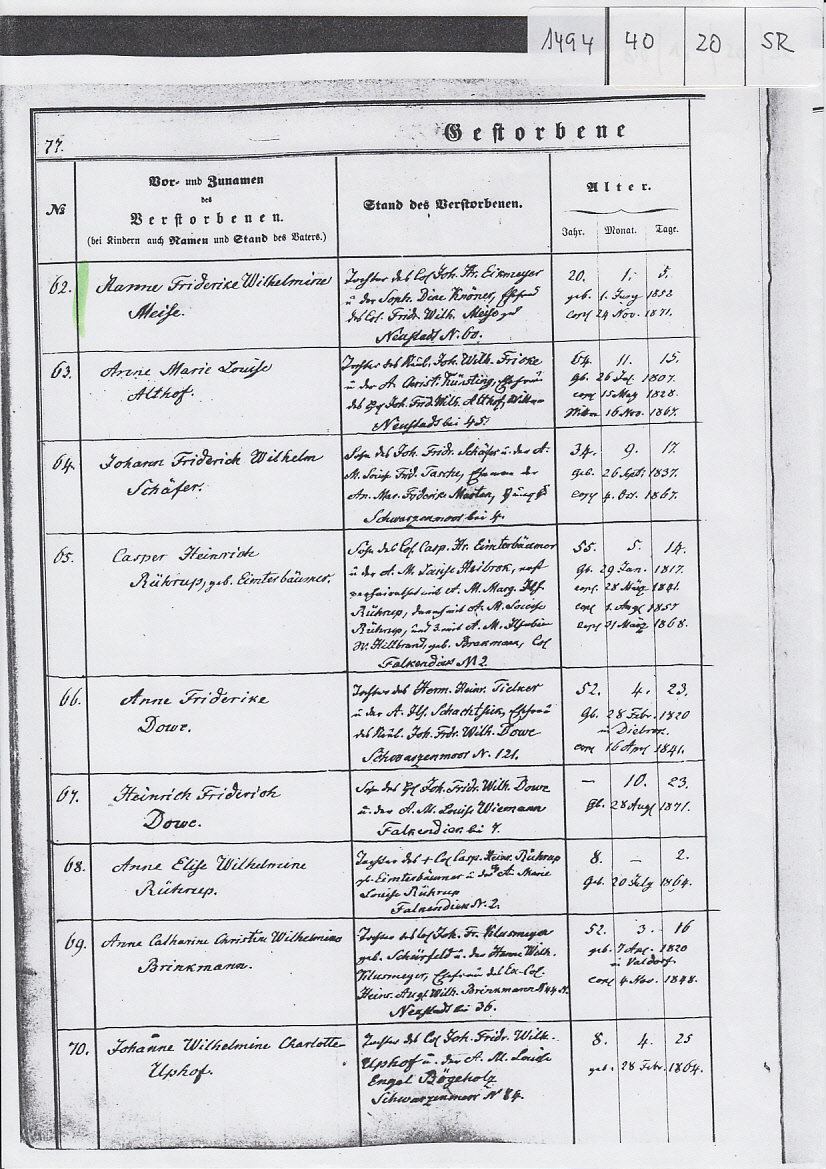 1494 40 20 SR
77.
Gestorbene
№
Vor- und Zunamen
des
Verstorbenen.
(bei Kindern auch Namen und Stand des Vaters.)
Stand des Verstorbenen.
Alter.
Jahr. Monat. Tage.
62.
Hanne Friderike Wilhelmine
Meise.
Tochter des Col Joh. Hr. Eikmeyer
u der Soph. Dine Krömer, Ehefrau
des Col. Fridr. Wilh. Meise
Neustadt N. 60.
20. 1. 5.
geb. 1. Juny 1852
copl 24 Nov. 1871.
63.
Anne Marie Louise
Althof.
Tochter des Joh. Wilh. Fricke
u der A Christ. Künsting, Ehefrau
des Joh. Frd. Wilh. Althof, Wittwe
Neustadt bei 45.
64. 11. 15.
gb. 26 1807.
copl 15 May 1828.
Wittw 16 Nov. 1867.
64.
Johann Friderich Wilhelm
Schäfer.
Sohn des Joh. Fridr. Schäfer u der A.
M. Louise Frid. Tasche, Ehemann der
An. Mar. Friderike Marten,
Schwarzenmoor bei 4.
34. 9. 17.
geb. 26 Sept. 1837.
copl 4. Oct. 1867.
65.
Casper Heinrich
Rührup, geb. Eimterbäumer.
Sohn des Col. Casp. Hr. Eimterbäumer
u der A. M. Louise Heibrok, erst
verheirathet mit A. M. Marg. Ils.
Rührup, dann mit A. M. Louise
Rührup, und 3. mit A. M. Ilsabein
W. Hillbrand, geb. Brakmann, Col
Falkendiek N 2.
55. 5. 14.
gb. 29 Jan. 1817.
copl 28 März 1841.
copl 1. Augl 1857
copl 21 März 1868.
66.
Anne Friderike
Dowe.
Tochter des Herm. Heinr. Tielker
u der A. Ils. Schachtsiek, Ehefrau
des Joh. Frdr. Wilh. Dowe
Schwarzenmoor N. 121.
52. 4. 23.
gb. 28 Febr. 1820
in Diebrok.
copl 16 Apr 1841.
67.
Heinrich Friderich
Dowe.
Sohn des Joh. Fridr. Wilh. Dowe
u. der A. M. Louise Wiemann
Falkendiek bei 7.
— 10. 23.
gb. 28 Augl 1871.
68.
Anne Elise Wilhelmine
Rührup.
Tochter des + Col Casp. Heinr. Rührup
gb. Eimterbäumer u der A. Marie
Louise Rührup
Falkendiek N. 2.
8. — 2.
geb. 20 July 1864.
69.
Anne Catharine Christine Wilhelmine
Brinkmann.
Tochter des Col Joh. Fr. Klusmeyer
geb. Scheirfeld u. der Hanne Wilh.
Klusmeyer, Ehefrau des Ex-Col.
Heinr. Augl Wilh. Brinkmann N 44
Neustadt bei 36.
52. 3. 16
geb. 7 Apr. 1820
in Valdorf.
copl 4 Nov. 1848.
70.
Johanne Wilhelmine Charlotte
Uphof.
Tochter des Col Joh. Fridr. Wilh.
Uphof u. der A. M. Louise
Engel Bögeholz
Schwarzenmoor N° 84.
8. 4. 25
geb. 28 Febr. 1864.